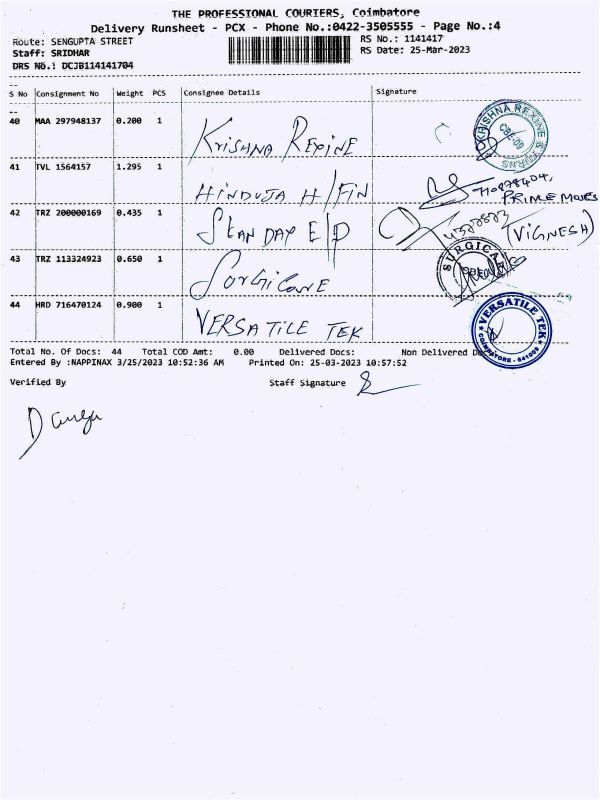 THE PROFESSIONAL COURIERS, Coimbatore
Delivery Runsheet - PCX - Phone No.:0422-3505555 - Page No.:4
Route: SENGUPTA STREET RS No.: 1141417
Staff: SRIDHAR RS Date: 25-Mar-2023
DRS No.: DCJB114141704
S No Consignment No Weight PCS Consignee Details Signature
40 MAA 297948137 0.200 1 KRISHNA REXINE KRISHNA REXINE &
41 TVL 1564157 1.295 1 HINDUJA H/FIN PRIME MOVES
42 TRZ 200000169 0.435 1 STANDAY E/P (VIGNESH)
43 TRZ 113324923 0.650 1 SURGICARE SURGICARE
44 HRD 716470124 0.900 1 VERSATILE TEK VERSATILE TEK COIMBATORE - 641009
Total No. Of Docs: 44 Total COD Amt: 0.00 Delivered Docs: Non Delivered Docs
Entered By :NAPPINAX 3/25/2023 10:52:36 AM Printed On: 25-03-2023 10:57:52
Verified By Staff Signature